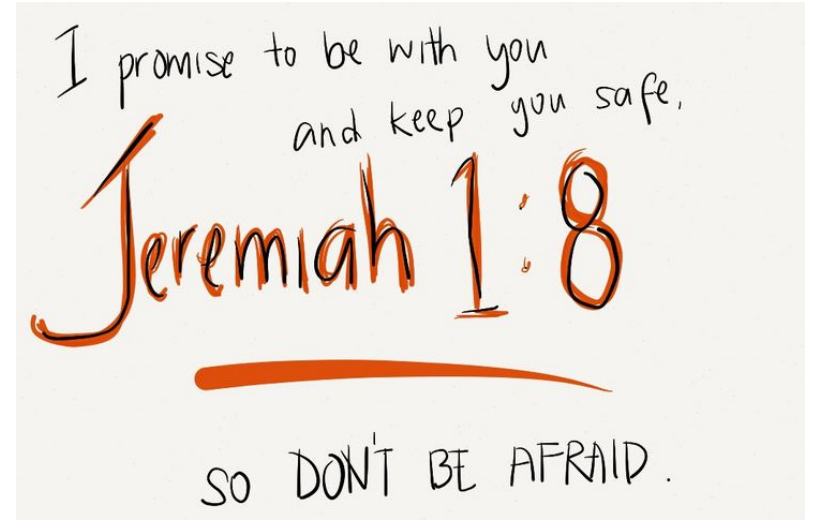 I promise to be with you
and keep you safe,
Jeremiah 1:8
so DON'T BE AFRAID.